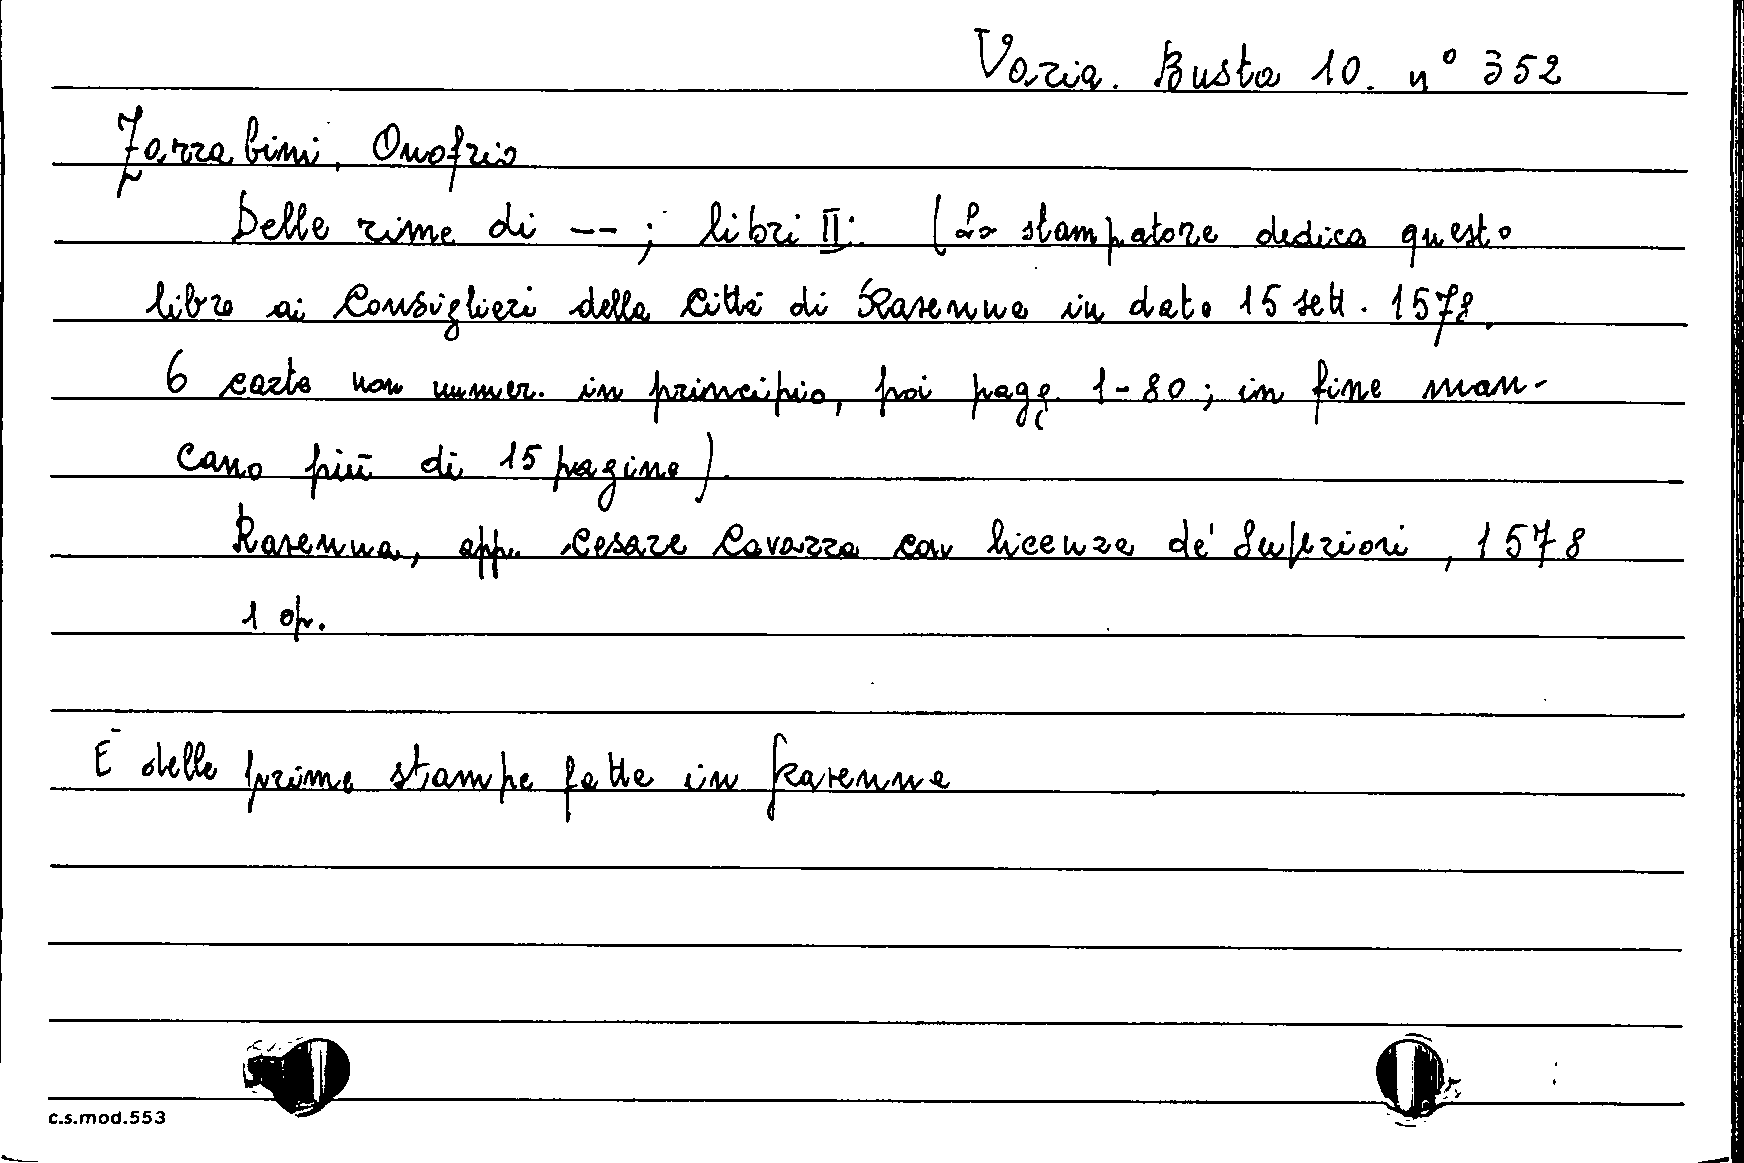 Varia. Busta 10. n° 352
Zarrabini, Onofrio
Delle rime di -- ; libri II. (Lo stampatore dedica questo
libro ai Consiglieri della Città di Ravenna in data 15 sett. 1578.
6 carte non numer. in principio, poi pagg. 1-80; in fine man-
cano più di 15 pagine).
Ravenna, app. Cesare Cavazza con licenza de' Superiori, 1578
1 op.
È delle prime stampe fatte in Ravenna
c.s.mod.553